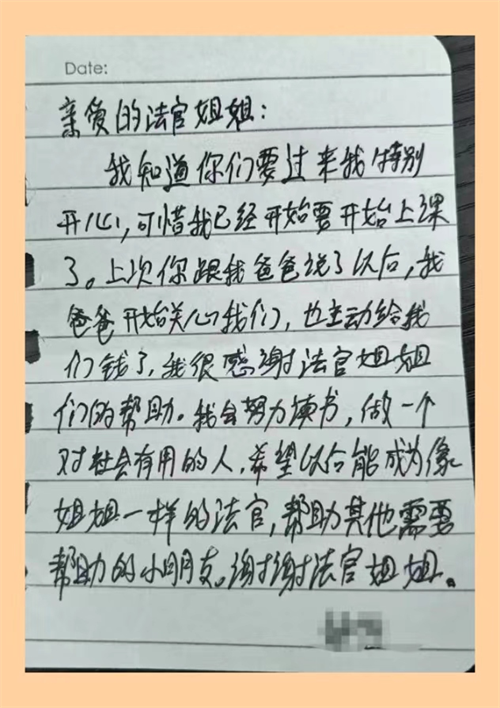 Date:
亲爱的法官姐姐：
我知道你们要过来我特别
开心，可惜我已经开始要开始上课
了。上次你跟我爸爸说了以后，我
爸爸开始关心我们，也主动给我
们钱了，我很感谢法官姐姐
们的帮助。我会努力读书，做一个
对社会有用的人，希望以后能成为像
姐姐一样的法官，帮助其他需要
帮助的小朋友。谢谢法官姐姐。